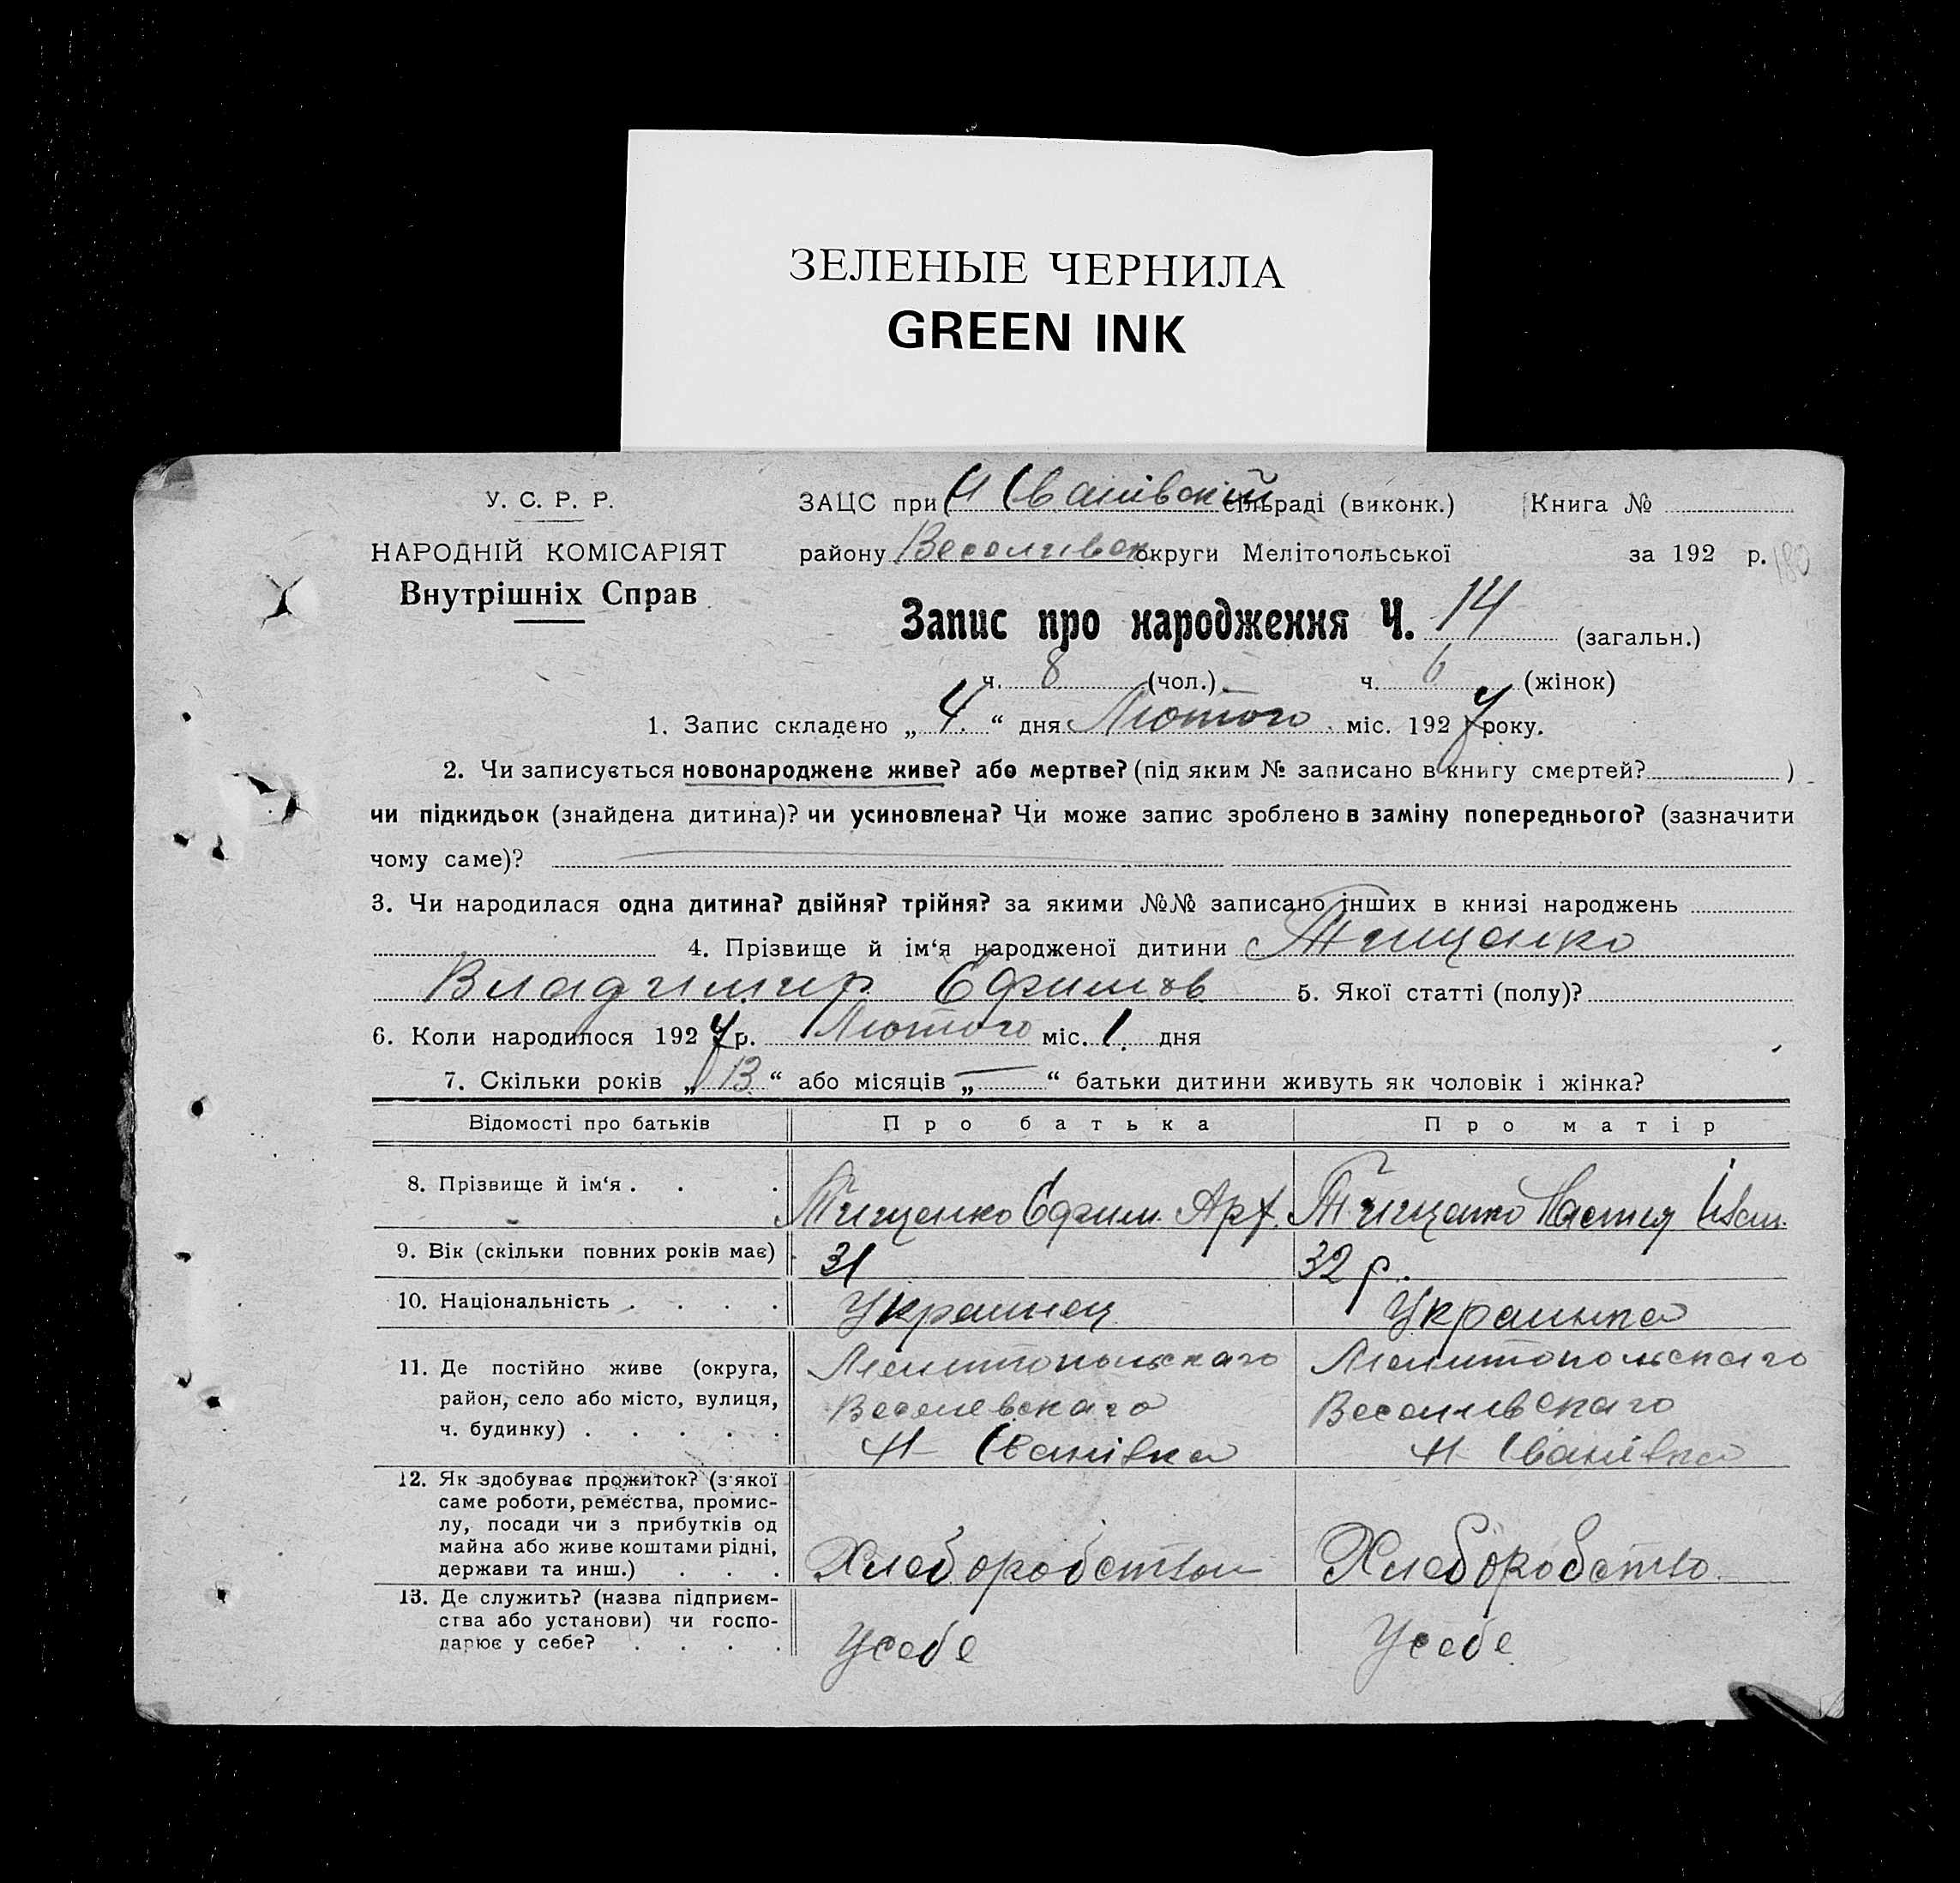 ЗЕЛЕНЫЕ ЧЕРНИЛА
GREEN INK
У. С. Р. Р.
НАРОДНІЙ КОМІСАРІЯТ
Внутрішніх Справ
ЗАЦС при Н Іванівській сільраді (виконк.) Книга №
району Веселівск округи Мелітопольської за 192 р. 180
Запис про народження Ч. 14 (загальн.)
ч. 8 (чол.) ч. 6 (жінок)
1. Запис складено „ 4 “ дня Лютого міс. 192 року.
2. Чи записується новонароджене живе? або мертве? (під яким № записано в книгу смертей? )
чи підкидьок (знайдена дитина)? чи усиновлена? Чи може запис зроблено в заміну попереднього? (зазначити
чому саме)?
3. Чи народилася одна дитина? двійня? трійня? за якими №№ записано інших в книзі народжень
4. Прізвище й ім‘я народженої дитини Тищенко
Владимир Ефимов 5. Якої статті (полу)?
6. Коли народилося 192 р. Лютого міс. 1. дня
7. Скільки років „ 13 “ або місяців „ — “ батьки дитини живуть як чоловік і жінка?
Відомості про батьків Про батька Про матір
8. Прізвище й ім‘я . . . Тищенко Ефим. Арт. Тищенко Настя Иван.
9. Вік (скільки повних років має) 31 32 р.
10. Національність . . . . Украинец Украинка
11. Де постійно живе (округа, Мелитопольскаго Мелитопольскаго
район, село або місто, вулиця, Веселевскаго Веселивскаго
ч. будинку) . . . . . Н Іванівка Н Іванівка
12. Як здобуває прожиток? (з якої
саме роботи, ремества, промис-
лу, посади чи з прибутків од
майна або живе коштами рідні,
держави та инш.) . . . Хлеборобством Хлеборобство.
13. Де служить? (назва підприєм-
ства або установи) чи госпо-
дарює у себе? . . . . Усебе Усебе